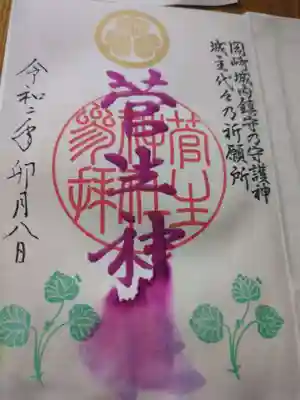 岡崎城内鎮守乃守護神
城主代々乃祈願所
菅生神社
参拝
令和二年卯月八日